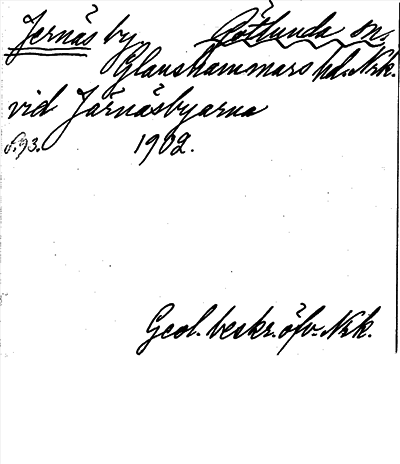 Jernäs by Götlunda sn.
Glanshammars hd. Nrk.
vid Järnäsbyarna
s. 93. 1902.
Geol. beskr. öfv. Nrk.